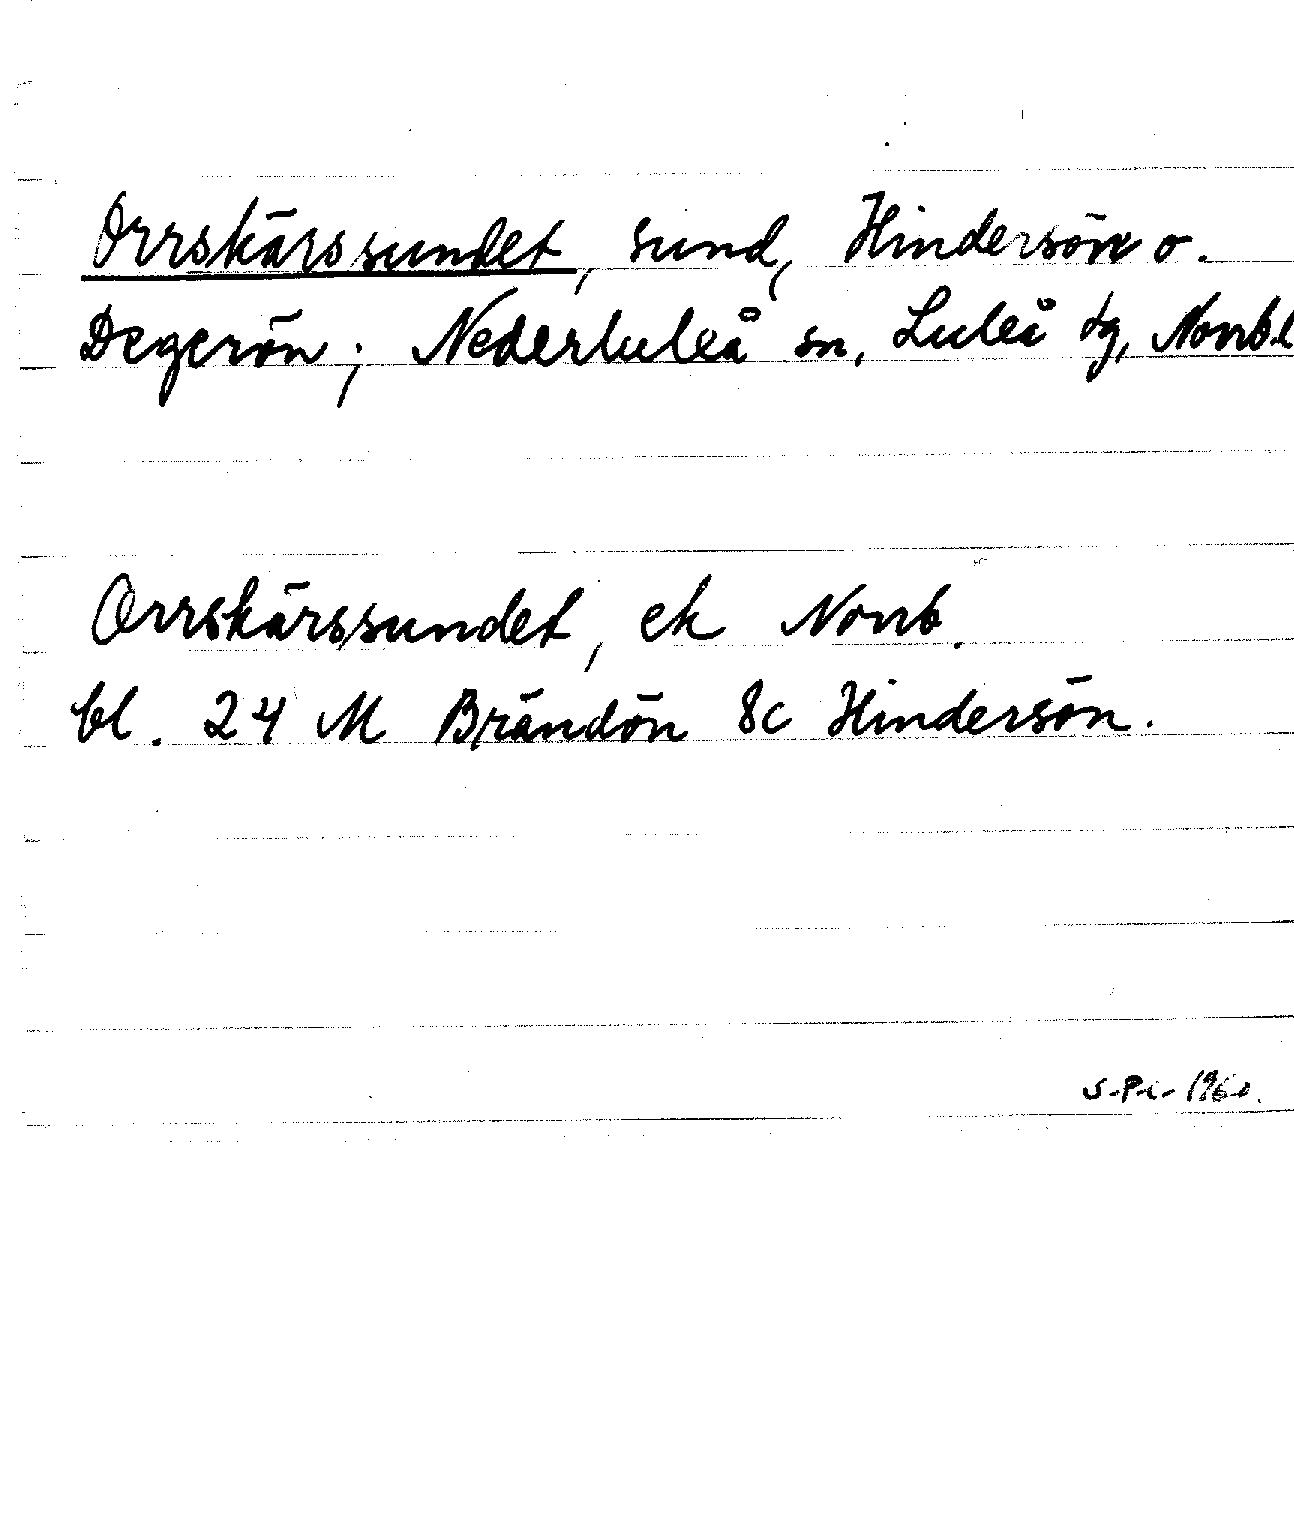 Orrskärssundet, sund, Hindersön o.
Degerön; Nederluleå sn, Luleå tg, Norrb.l
Orrskärssundet, ek Norrb.
bl. 24 M Brändön 8c Hindersön.
1960.